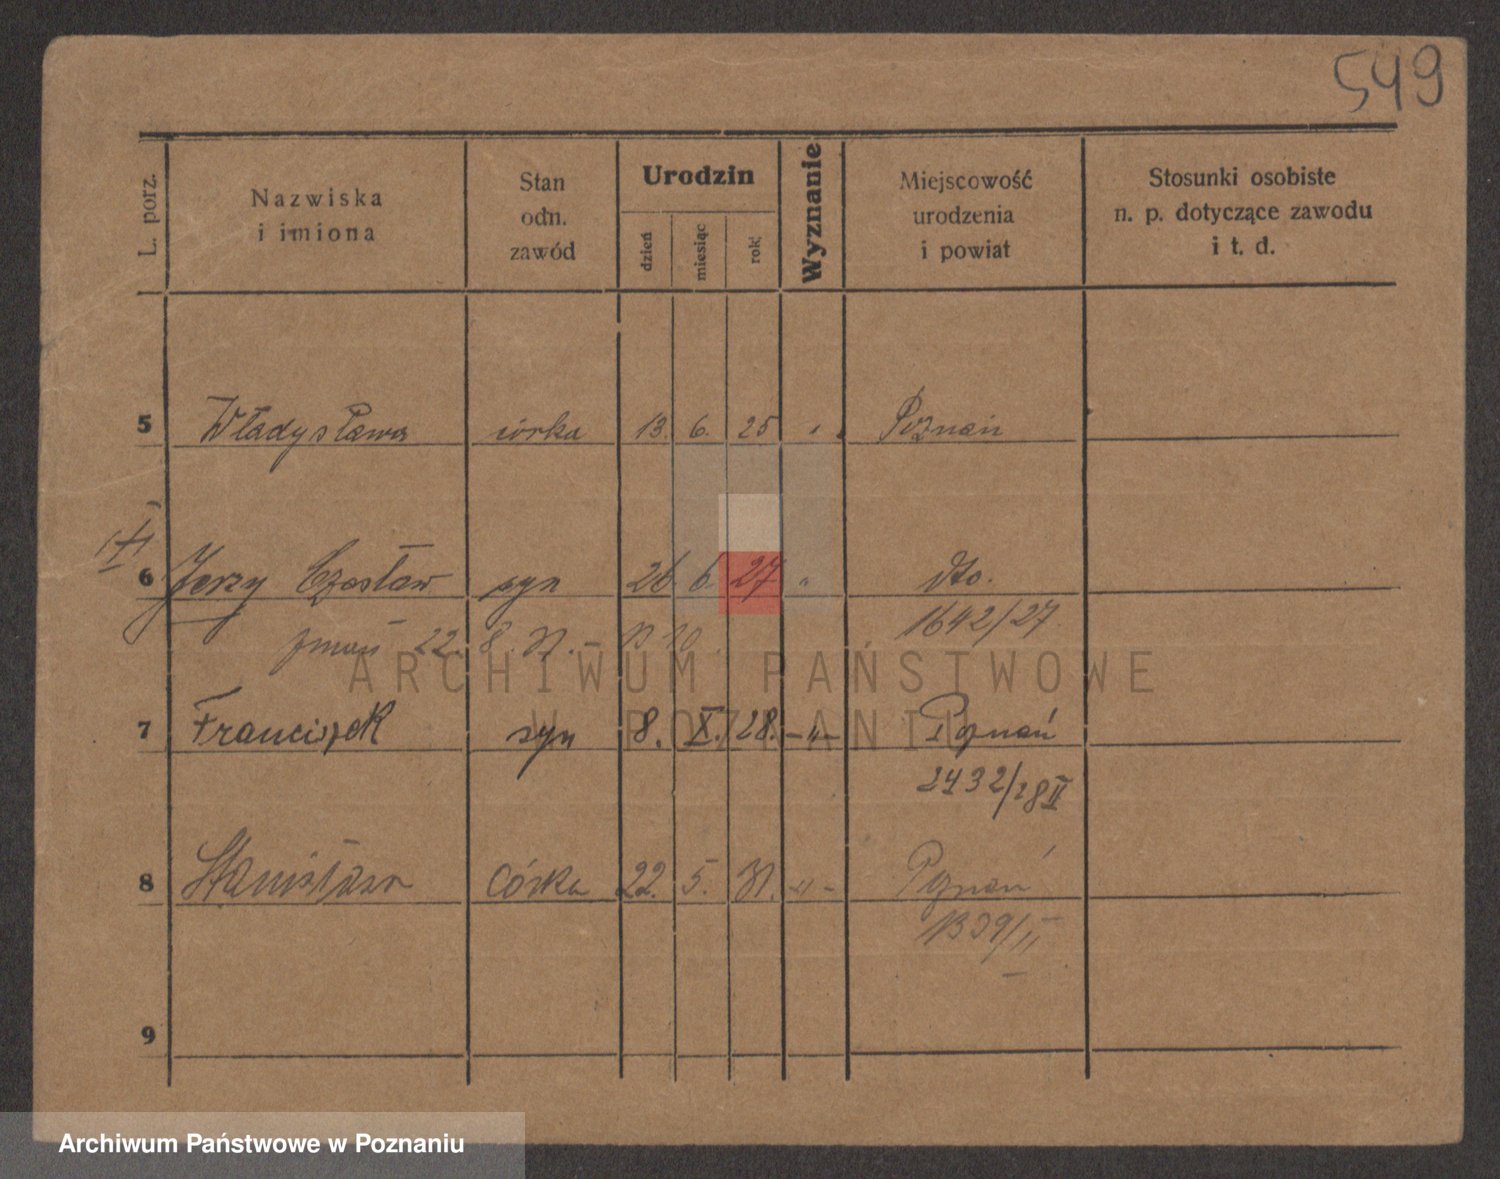 549
L. porz.
Nazwiska
i imiona
Stan
odn.
zawód
Urodzin
dzień
miesiąc
rok
Wyznanie
Miejscowość
urodzenia
i powiat
Stosunki osobiste
n. p. dotyczące zawodu
i t. d.
5 Władysława córka 13. 6. 25 " Poznań
6 Jerzy Czesław syn 26. 6. 27 " dto.
1642/27
zmarł 22. 8.
7 Franciszek syn 8. X. 28. -"- Poznań
2432/28 II
8 Stanisława córka 22. 5. 31. -"- Poznań
9
ARCHIWUM PAŃSTWOWE
W POZNANIU
Archiwum Państwowe w Poznaniu